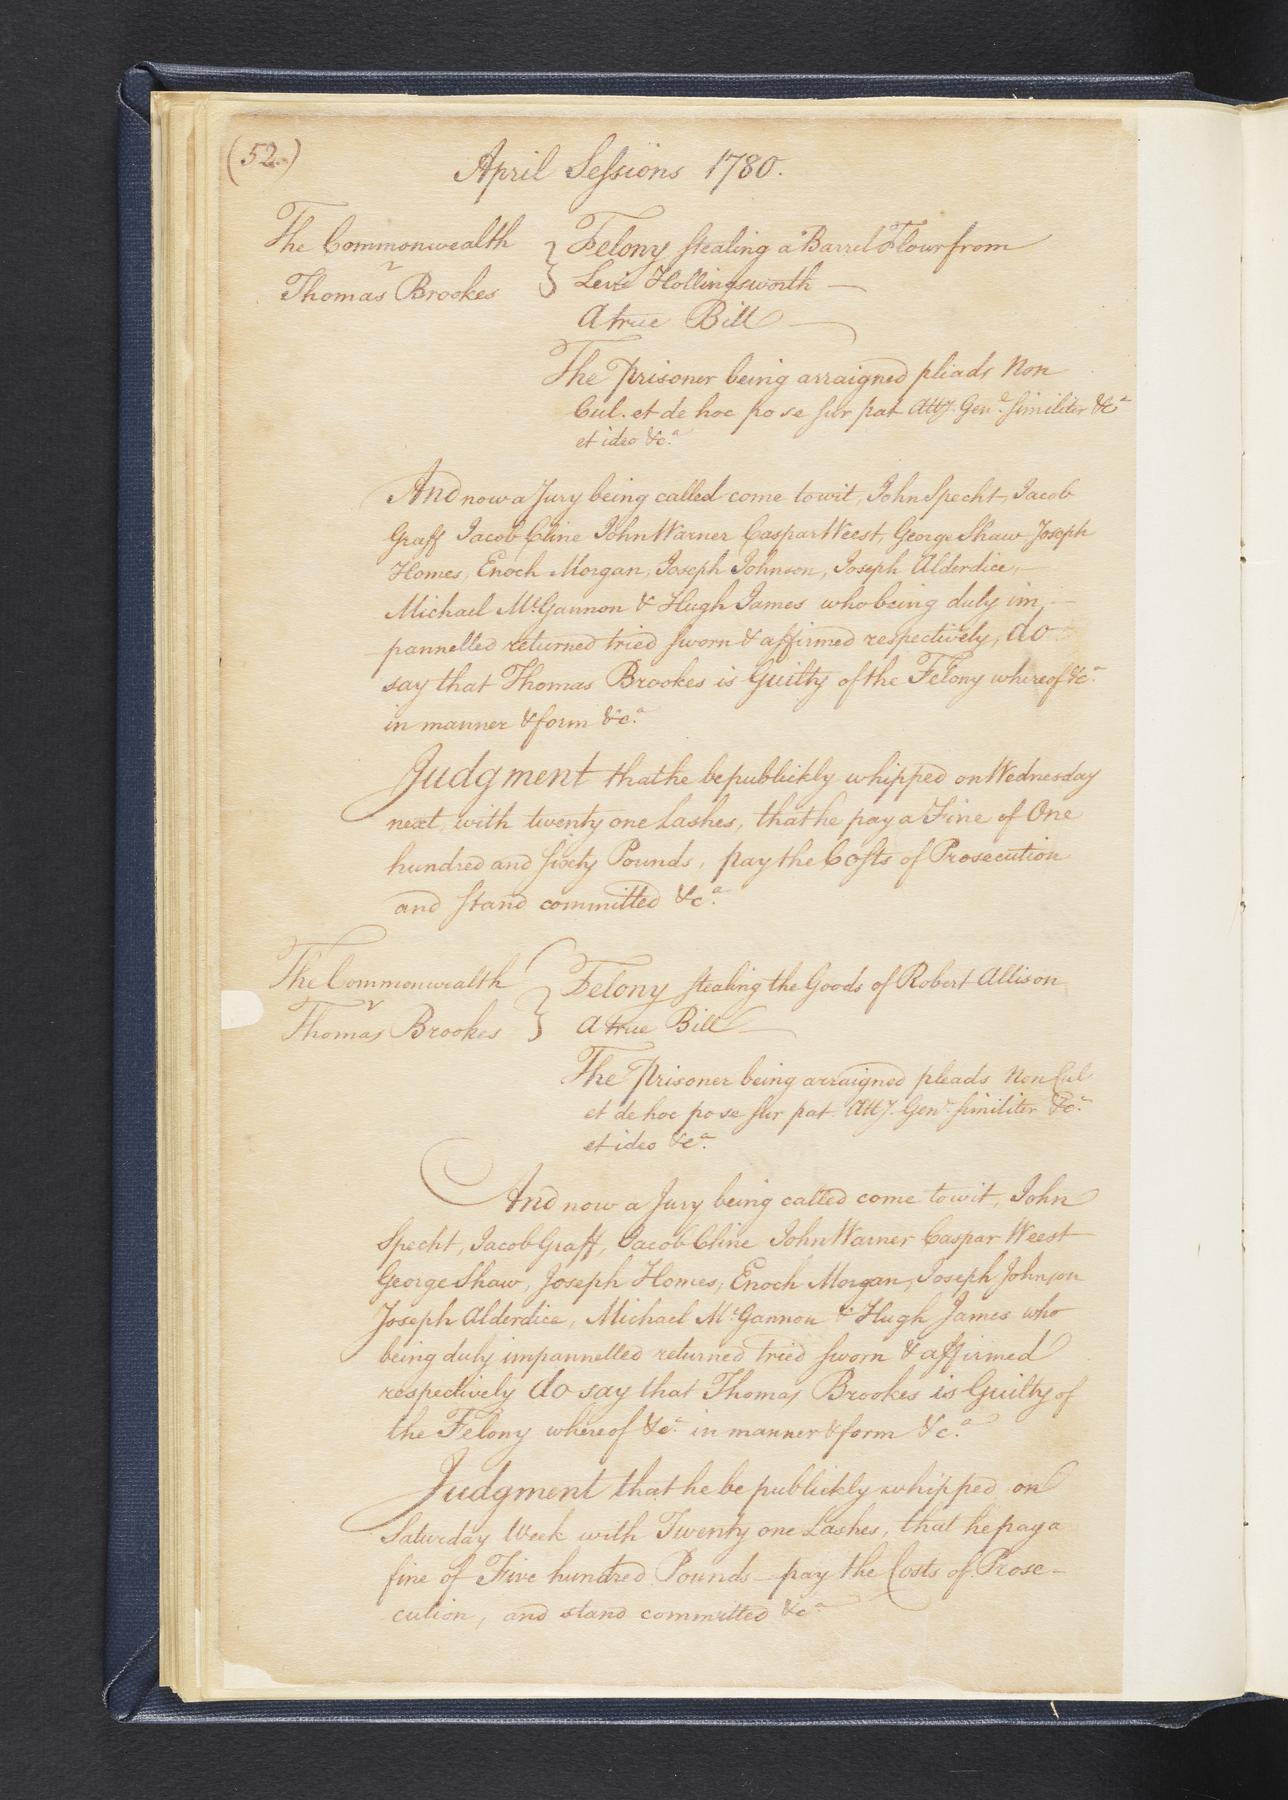 (52.)
April Sessions 1780.
The Commonwealth
v
Thomas Brookes
Felony stealing a Barrel Flour from
Levi Hollingsworth —
A true Bill —
The Prisoner being arraigned pleads Non
Cul. et de hoc po se sur pat Atty. Genl. similiter &ca
et ideo &ca.
And now a Jury being called come to wit, John Specht, Jacob
Graff Jacob Cline John Warner Caspar Weest, George Shaw Joseph
Homes, Enoch Morgan, Joseph Johnson, Joseph Alderdice, —
Michael McGannon & Hugh James who being duly im, —
pannelled returned tried sworn & affirmed respectively, do
say that Thomas Brookes is Guilty of the Felony whereof &ca.
in manner & form &ca.
Judgment that he be publickly whipped on Wednesday
next, with twenty one Lashes, that he pay a Fine of One
hundred and sixty Pounds, pay the Costs of Prosecution
and stand committed &ca.
The Commonwealth
v
Thomas Brookes
Felony stealing the Goods of Robert Allison
A true Bill —
The Prisoner being arraigned pleads Non Cul
et de hoc po se sur pat. Atty. Genl. similiter &ca.
et ideo &ca.
And now a Jury being called come to wit, John
Specht, Jacob Graff, Jacob Cline John Warner Caspar Weest
George Shaw, Joseph Homes, Enoch Morgan, Joseph Johnson
Joseph Alderdice, Michael McGannon & Hugh James who
being duly impannelled returned tried sworn & affirmed
respectively do say that Thomas Brookes is Guilty of
the Felony whereof &ca. in manner & form &ca.
Judgment that he be publickly whipped on
Saturday Week with Twenty one Lashes, that he pay a
fine of Five hundred Pounds — pay the Costs of Prose-
cution, and stand committed &ca.